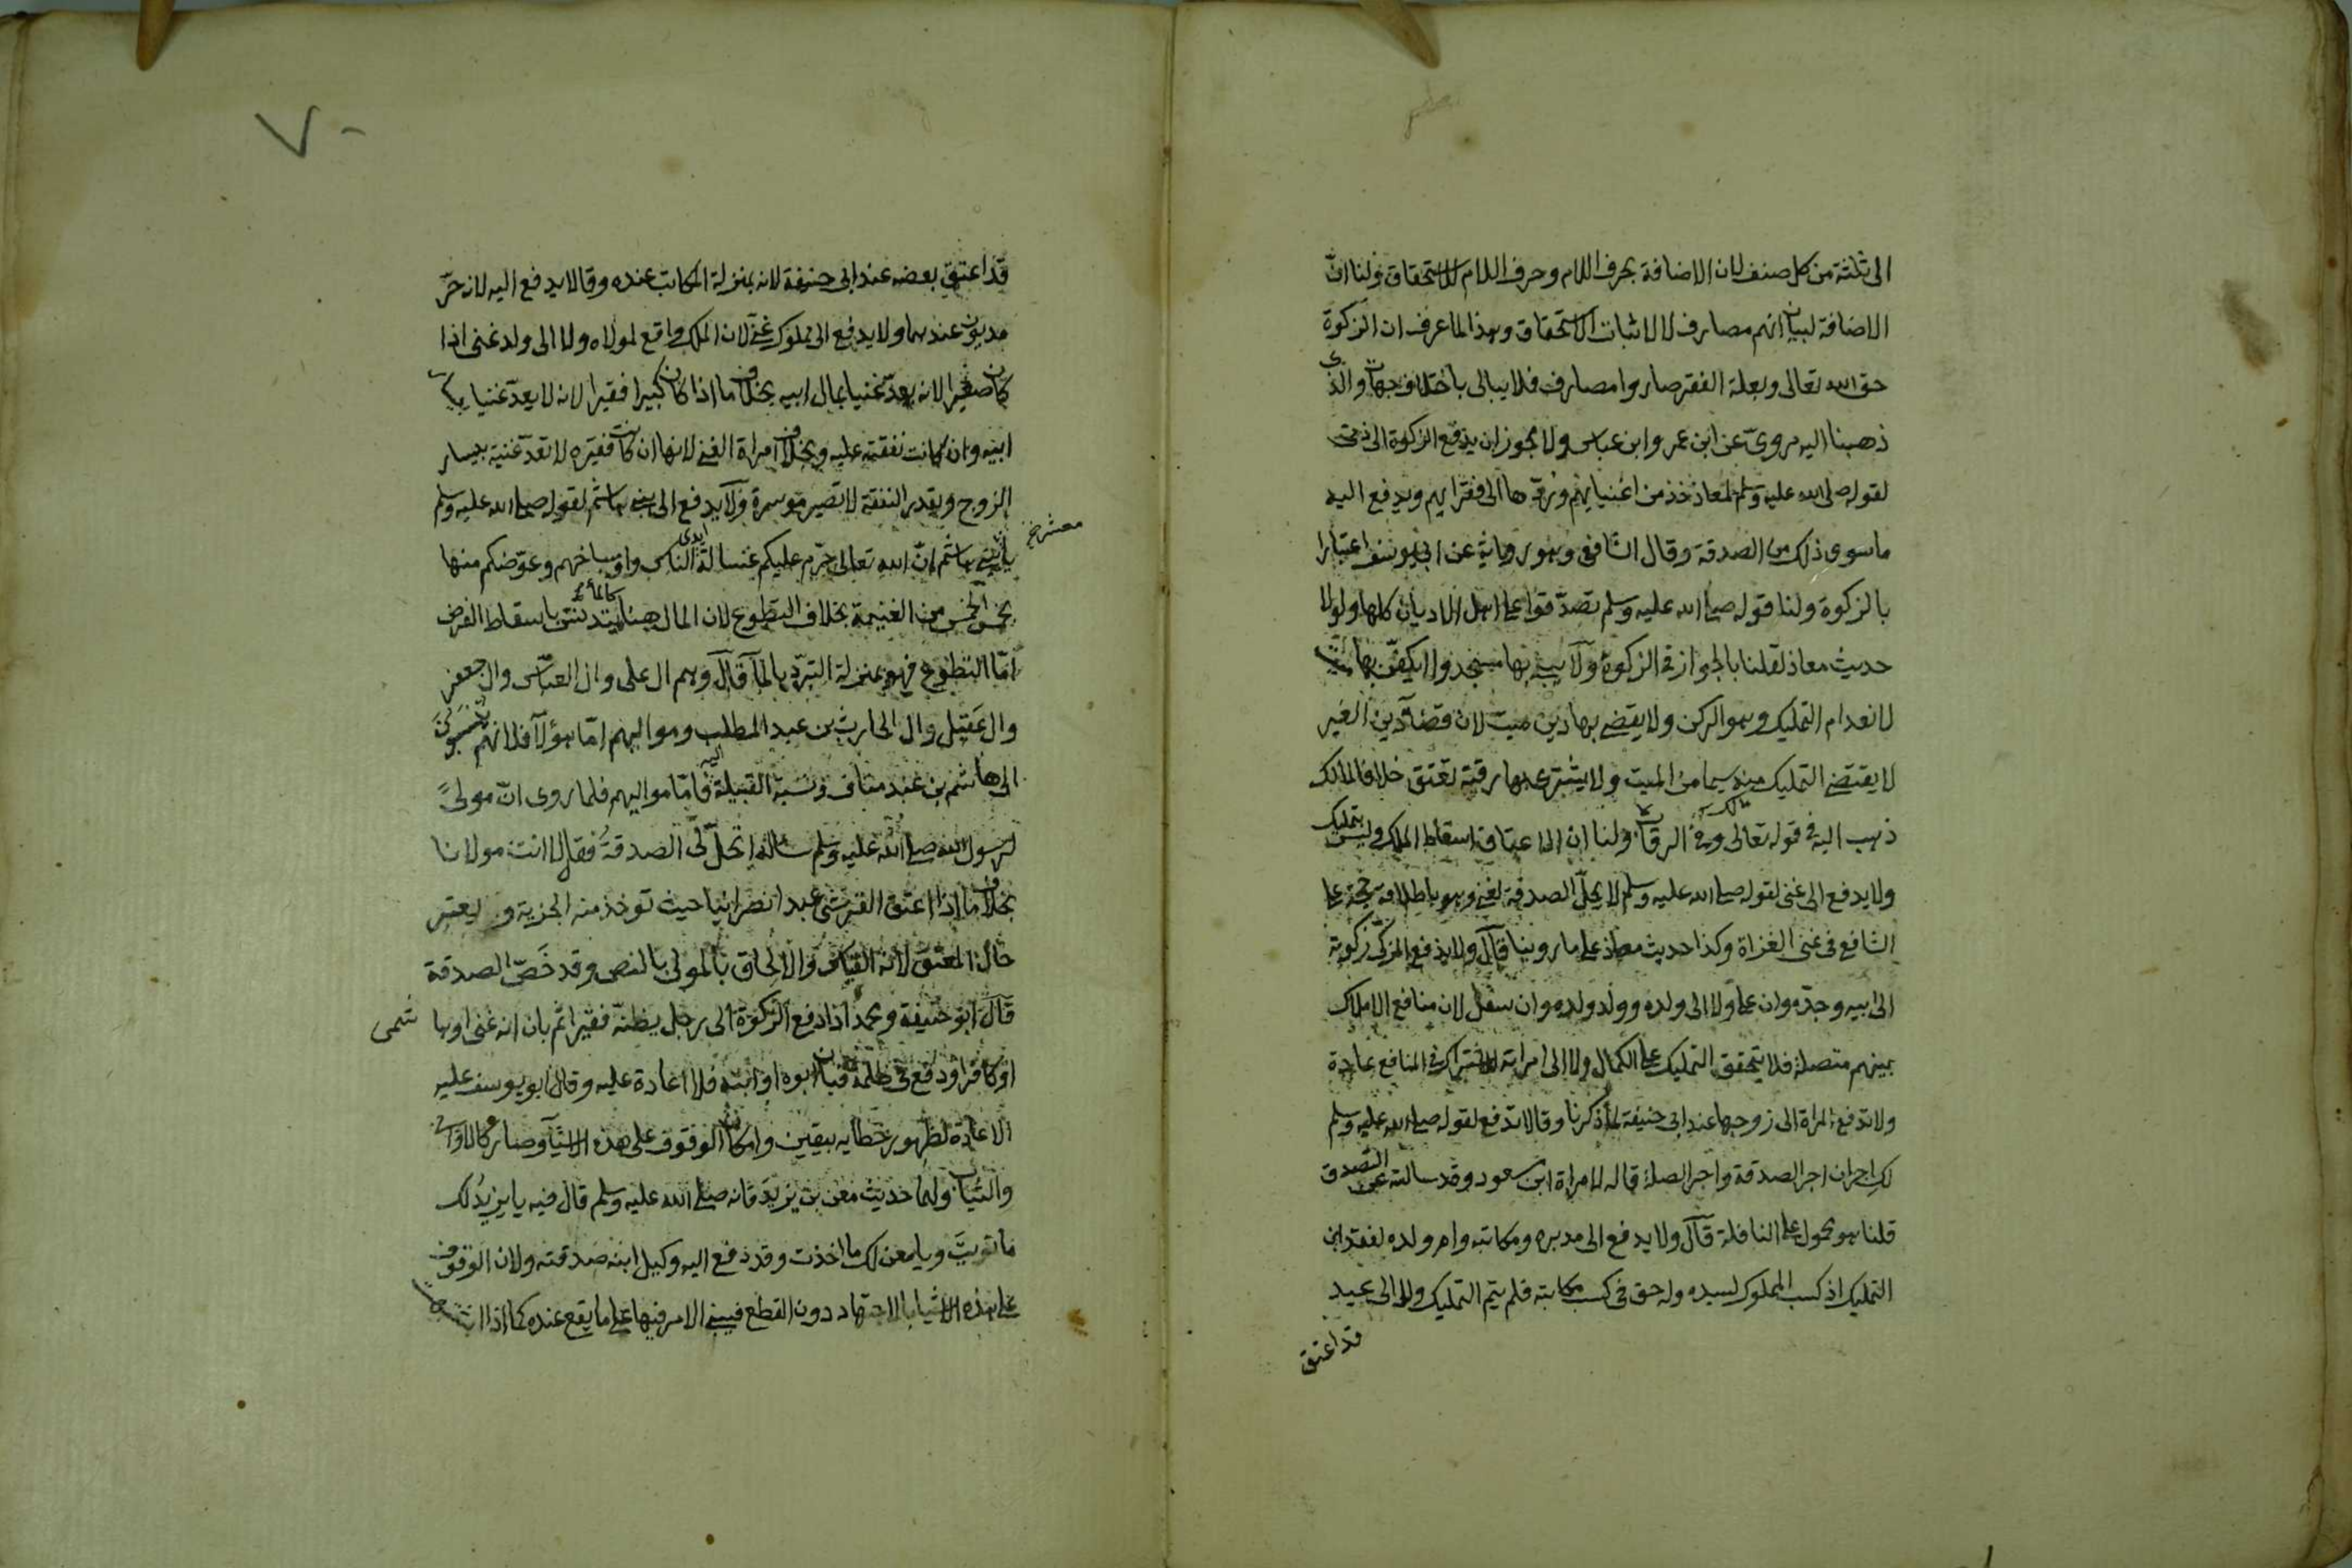 الى ثلثة من كل صنف لان الاضافة بحرف اللام وحرف اللام للاستحقاق ولنا انّ
الاضافة لبيان انهم مصارف لا لاثبات الاستحقاق وهذا لما عرف ان الزكوة
حق الله تعالى وبعلة الفقر صاروا مصارف فلا يبالى باختلاف جهاته والذى
ذهبنا اليه مروىّ عن ابن عمر وابن عباس ولا يجوز ان يدفع الزكوة الى ذمى
لقوله صلى الله عليه وسلم لمعاذ خذ من اغنيايهم وردّها الى فقرايهم ويدفع اليه
ما سوى ذلك من الصدقة وقال الشافعى وهو رواية عن ابى يوسف اعتبارا
بالزكوة ولنا قوله صلى الله عليه وسلم تصدّقوا على اهل الاديان كلها ولولا
حديث معاذ لقلنا بالجواز فى الزكوة ولا يبنى بها مسجد ولا يكفّن بها ميت
لانعدام التمليك وهو الركن ولا يقضى بها دين ميت لان قضآ دين الغير
لا يقتضى التمليك منه سيما من الميت ولا يشترى بها رقبة تعتق خلافا لمالك
ذهب اليه فى قوله تعالى وفى الرقاب ولنا ان الاعتاق اسقاط الملك وليس بتمليك
ولا يدفع الى غنى لقوله صلى الله عليه وسلم لا يحلّ الصدقة لغنى وهو باطلاقه حجة على
الشافعى فى غنى الغزاة وكذا حديث معاذ على ما روينا قال ولا يدفع المزكّى زكوته
الى ابيه وجدّه وان علا ولا الى ولده وولد ولده وان سفل لان منافع الاملاك
بينهم متصلة فلا يتحقق التمليك على الكمال ولا الى امراته للاشتراك فى المنافع عادة
ولا تدفع المراة الى زوجها عند ابى حنيفة لما ذكرنا وقالا تدفع لقوله صلى الله عليه وسلم
لك اجران اجر الصدقة واجر الصلة قاله لامراة ابن مسعود وقد سالته عن التصدق
قلنا هو محمول على النافلة قال ولا يدفع الى مدبره ومكاتبه وام ولده لفقدان
التمليك اذ كسب المملوك لسيده وله حق فى كسب مكاتبه فلم يتم التمليك ولا الى عبد
قد اعتق
٧٠
قد اعتق بعضه عند ابى حنيفة لانه بمنزلة المكاتب عنده وقالا يدفع اليه لانه حرّ
مديون عندهما ولا يدفع الى مملوك غنى لان الملك واقع لمولاه ولا الى ولد غنى اذا
كان صغيرا لانه يعدّ غنيا بمال ابيه بخلاف ما اذا كان كبيرا فقيرا لانه لا يعدّ غنيا بيسار
ابيه وان كانت نفقته عليه وبخلاف امراة الغنى لانها ان كانت فقيره لا تعدّ غنية بيسار
الزوج وبقدر النفقة لا تصير موسرة ولا يدفع الى بنى هاشم لقوله صلى الله عليه وسلم
معشر خ
يا بنى هاشم انّ الله تعالى حرّم عليكم غسالة ايدى الناس واوساخهم وعوّضكم منها
بخمس الخمس من الغنيمة بخلاف التطوع لان المال ههنا كالمآء يتدنّس باسقاط الفرض
امّا التطوع فهو بمنزلة التبرّد بالمآ قال وهم ال على وال العبّاس وال جعفر
وال عقيل وال الحارث بن عبد المطلب ومواليهم امّا هؤلآ فلانهم ينسبون
الى هاشم بن عبد مناف ونسبة القبيلة اليه فامّا مواليهم فلما روى انّ مولىً
لرسول الله صلى الله عليه وسلم ساله اتحلّ لى الصدقة فقال لا انت مولانا
بخلاف ما اذا اعتق القرشى عبدا نصرانيا حيث توخذ منه الجزية ويعتبر
حال المعتق لانه القياس والالحاق بالمولى بالنص وقد خصّ الصدقة
قال ابو حنيفة ومحمد اذا دفع الزكوة الى رجل يظنّه فقيرا ثم بان انه غنى او هاشمى
او كافر او دفع فى ظلمة فبان انه ابوه او ابنه فلا اعادة عليه وقال ابو يوسف عليه
الاعادة لظهور خطايه بيقين وامكان الوقوف على هذه الاشيآ وصار كالاوانى
والثياب ولهما حديث معن بن يزيد فانه صلى الله عليه وسلم قال فيه يا يزيد لك
ما نويت ويا معن لك ما اخذت وقد دفع اليه وكيل ابيه صدقته ولان الوقوف
على هذه الاشيا بالاجتهاد دون القطع فيبنى الامر فيها على ما يقع عنده كما اذا اشتبهت